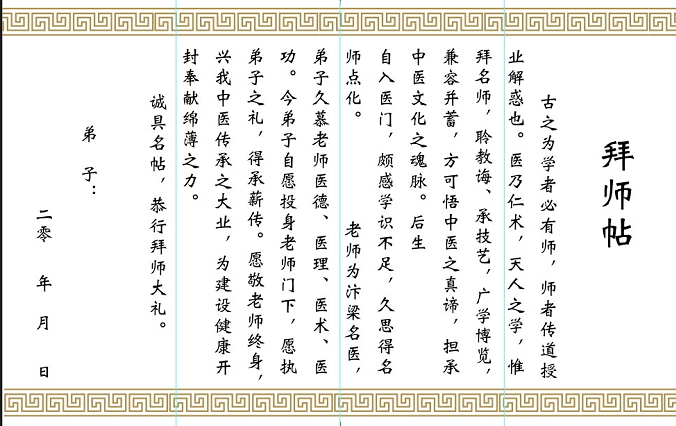 拜师帖
古之为学者必有师，师者传道授
业解惑也。医乃仁术，天人之学，惟
拜名师，聆教诲、承技艺，广学博览，
兼容并蓄，方可悟中医之真谛，担承
中医文化之魂脉。后生
自入医门，颇感学识不足，久思得名
师点化。 老师为汴梁名医，
弟子久慕老师医德、医理、医术、医
功。今弟子自愿投身老师门下，愿执
弟子之礼，得承薪传。愿敬老师终身，
兴我中医传承之大业，为建设健康开
封奉献绵薄之力。
诚具名帖，恭行拜师大礼。
弟 子：
二零 年 月 日